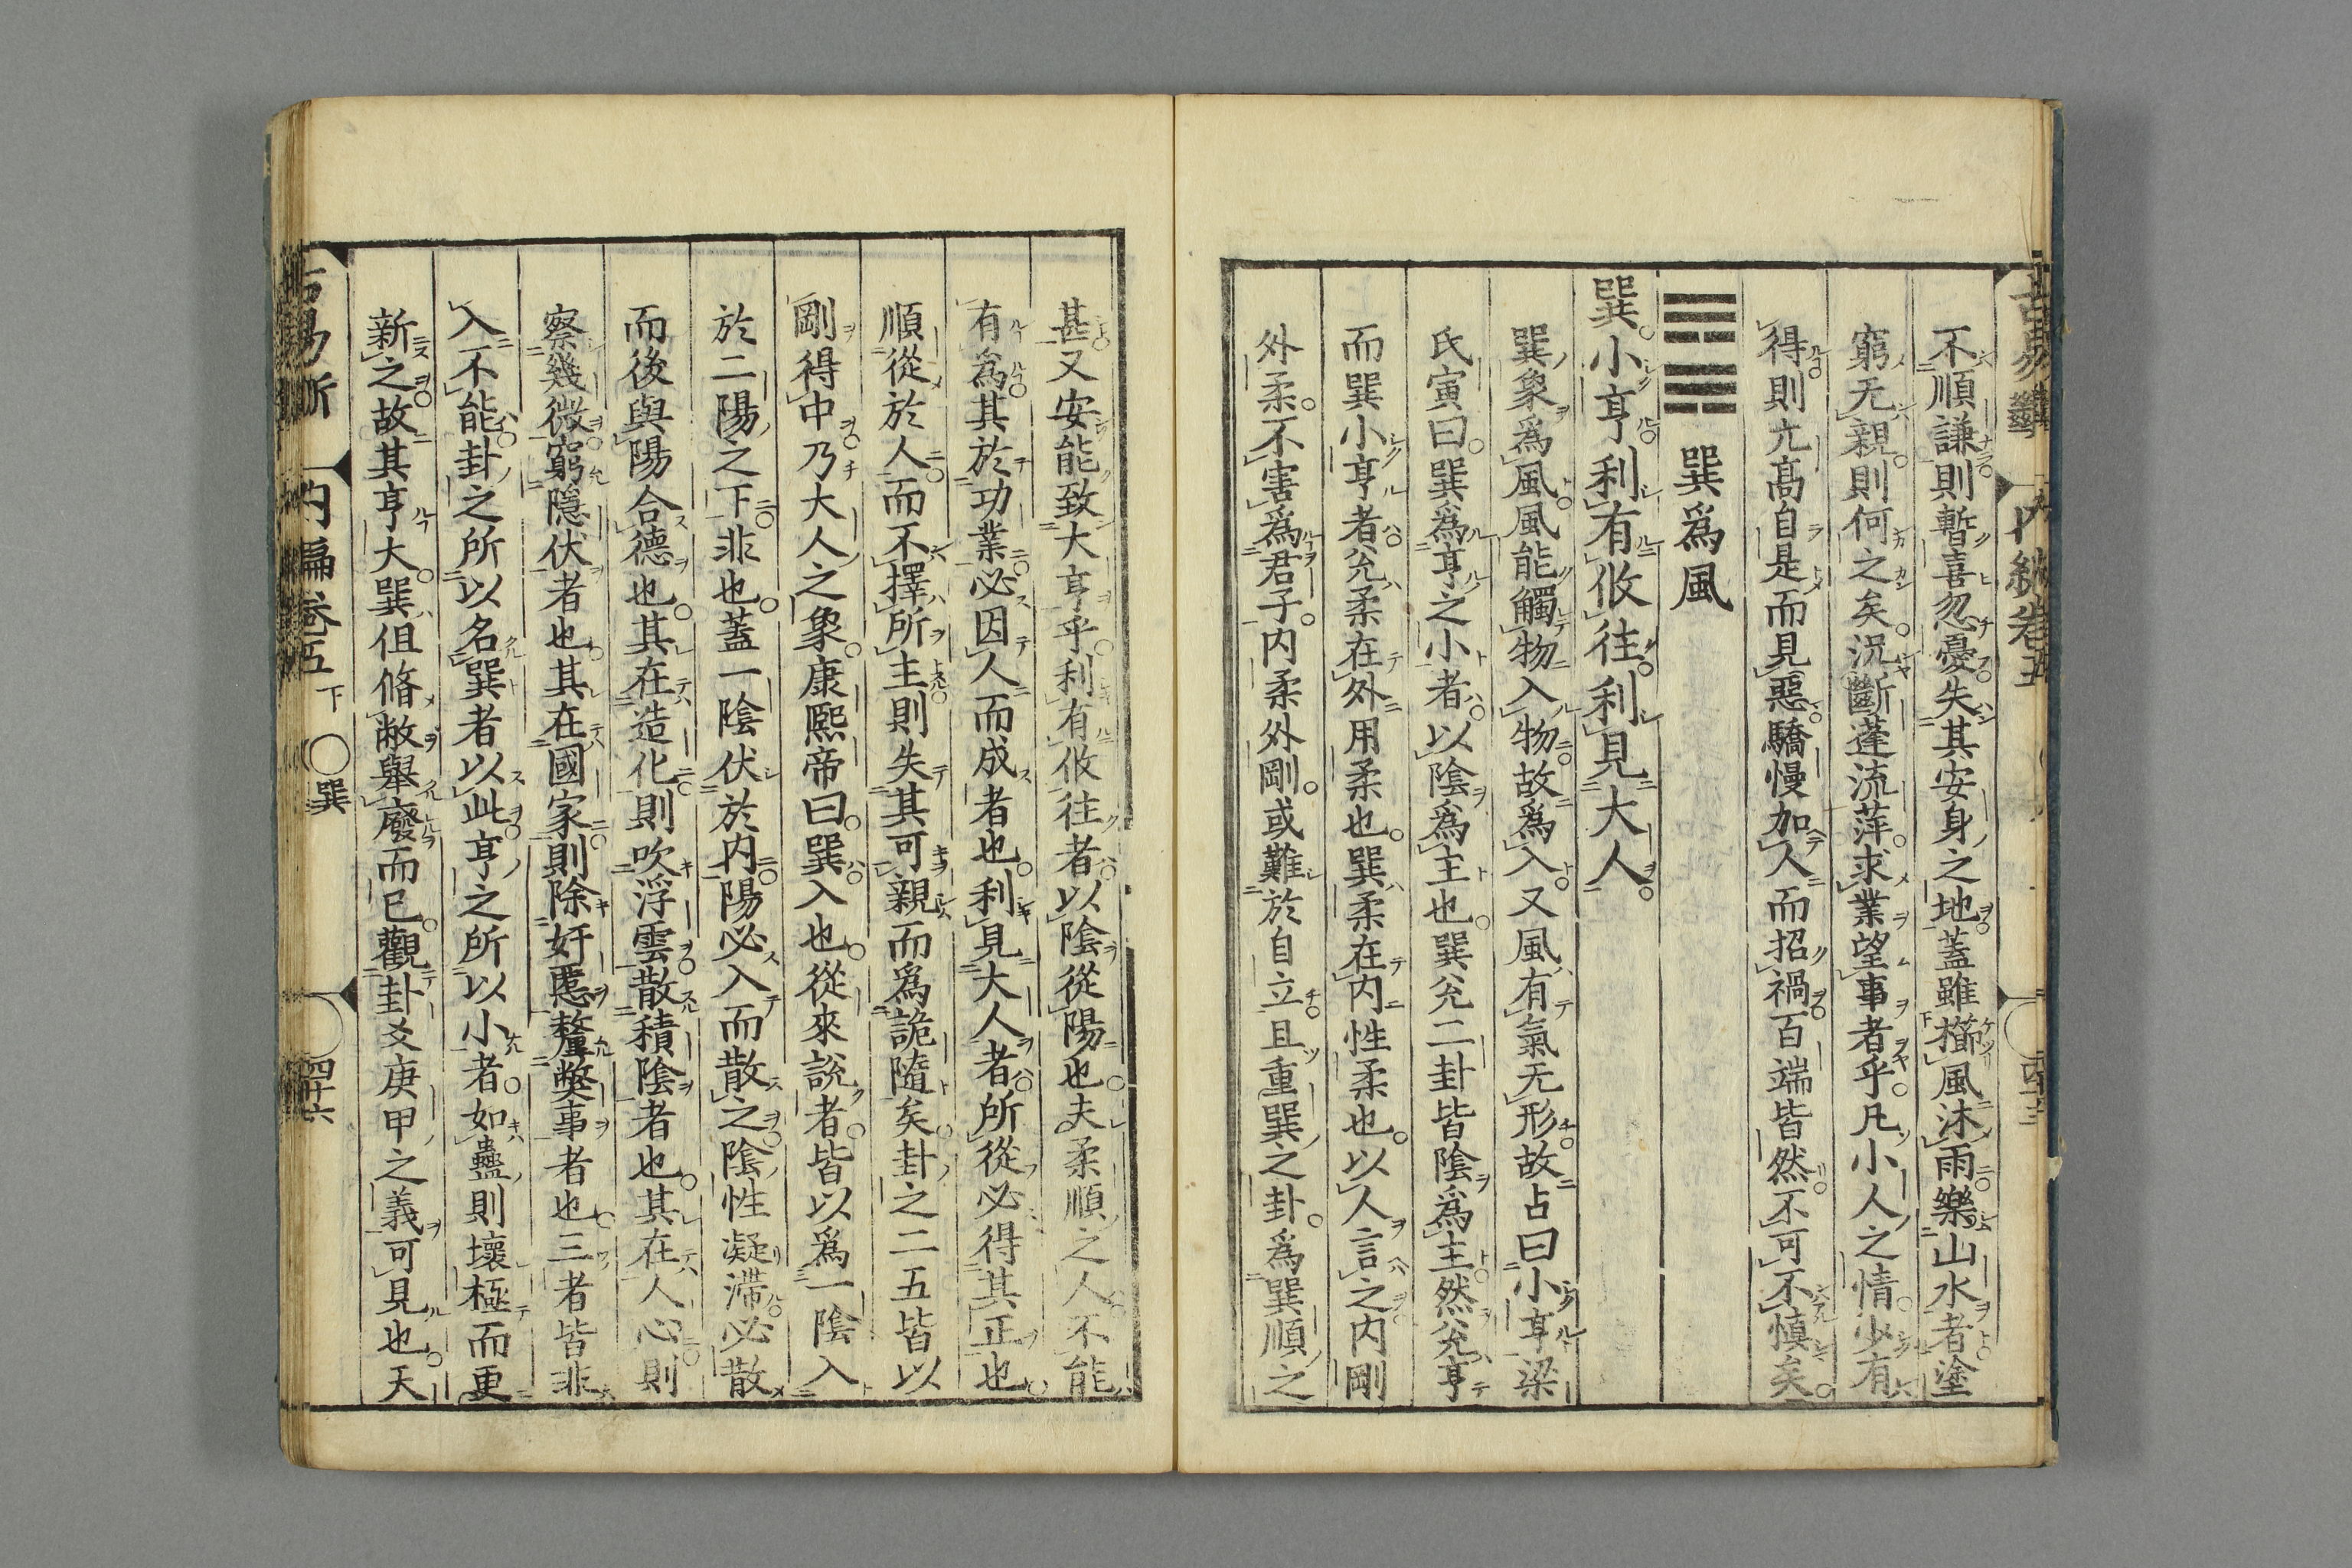 不順謙則暫喜忽憂失其安身之地蓋雖櫛風沐雨樂山水者塗
窮无親則何之矣況斷蓬流萍求業望事者乎凡小人之情少有
得則亢高自是而見惡驕慢加人而招禍百端皆然不可不慎矣
巽爲風
巽小亨利有攸往利見大人
巽象爲風風能觸物入物故爲入又風有氣无形故占曰小亨梁
氏寅曰巽爲亨之小者以陰爲主也巽兌二卦皆陰爲主然兌亨
而巽小亨者兌柔在外用柔也巽柔在內性柔也以人言之內剛
外柔不害爲君子內柔外剛或難於自立且重巽之卦爲巽順之
甚又安能致大亨乎利有攸往者以陰從陽也夫柔順之人不能
有爲其於功業必因人而成者也利見大人者所從必得其正也
順從於人而不擇所主則失其可親而爲詭隨矣卦之二五皆以
剛得中乃大人之象康熙帝曰巽入也從來說者皆以爲一陰入
於二陽之下非也蓋一陰伏於內陽必入而散之陰性凝滯必散
而後與陽合德也其在造化則吹浮雲散積陰者也其在人心則
察幾微窮隱伏者也其在國家則除奸慝釐弊事者也三者皆非
入不能卦之所以名巽者以此亨之所以小者如蠱則壞極而更
新之故其亨大巽但脩敝舉廢而已觀卦爻庚甲之義可見也天
易斷 內編卷五下 ○巽 四十六